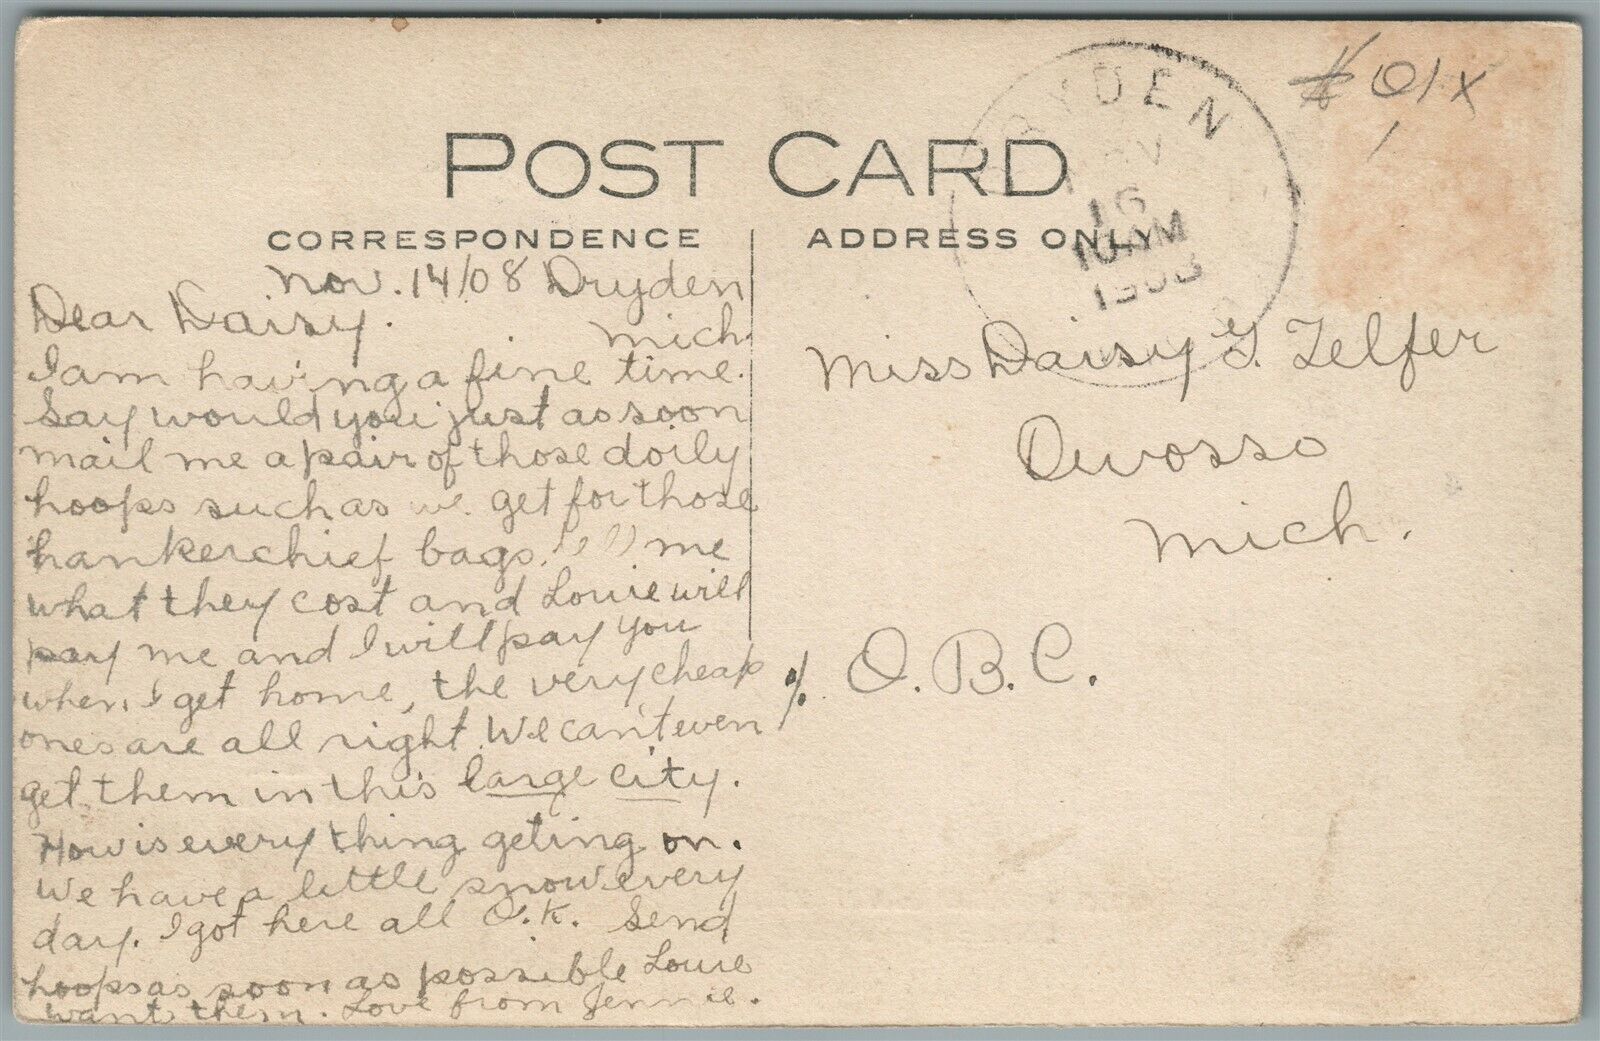 POST CARD
CORRESPONDENCE
ADDRESS ONLY
DRYDEN
16
10 AM
1908
# 01x
Nov. 14/08 Dryden
Mich.
Dear Daisy.
I am having a fine time.
Say would you just as soon
mail me a pair of those doily
hoops such as we get for those
hankerchief bags. me
what they cost and Louie will
pay me and I will pay you
when I get home, the very cheap
ones are all right. We can't even
get them in this large city.
How is every thing geting on.
We have a little snow every
day. I got here all O.K. Send
hoops as soon as possible Louie
wants them. Love from Jennie.
Miss Daisy G. Telfer
Owosso
Mich.
% O.B.C.